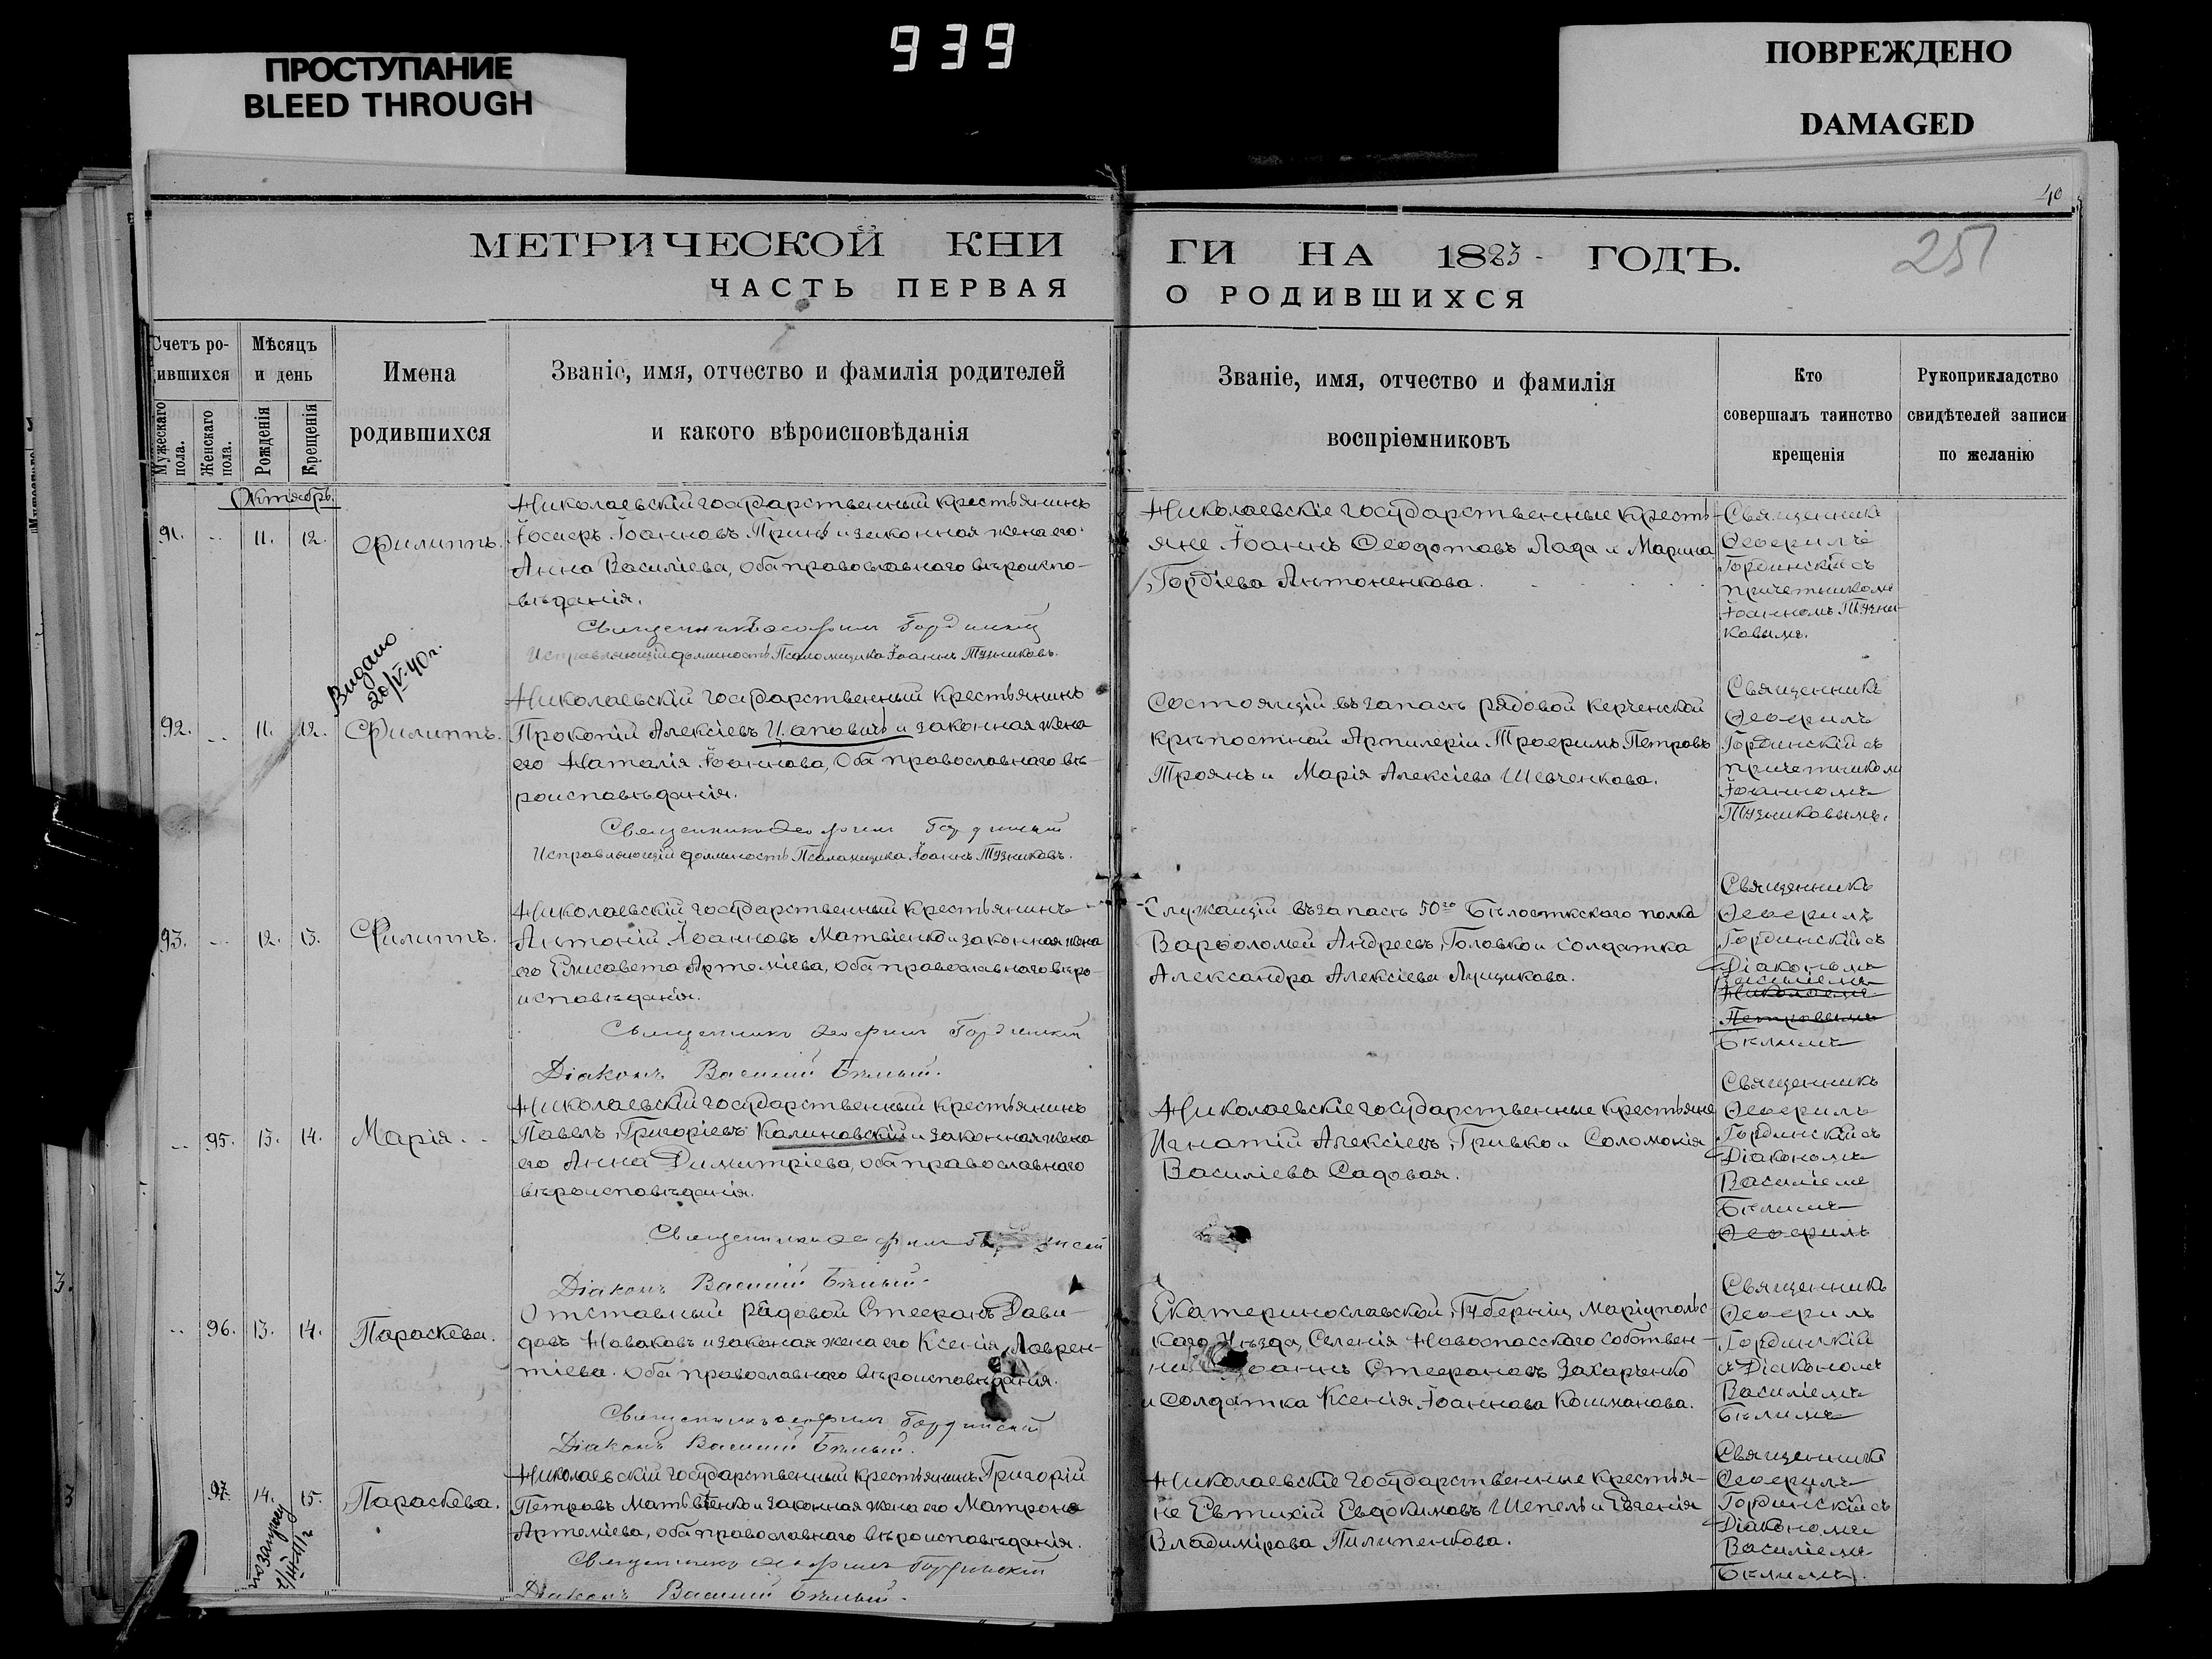 939
ПРОСТУПАНИЕ
BLEED THROUGH
ПОВРЕЖДЕНО
DAMAGED
40
251
МЕТРИЧЕСКОЙ КНИ
ГИ НА 1883 ГОДЪ.
ЧАСТЬ ПЕРВАЯ
О РОДИВШИХСЯ
Счетъ ро-
дившихся
Мужескаго пола.
Женскаго пола.
Мѣсяцъ
и день
Рожденія
Крещенія
Имена
родившихся
Званіе, имя, отчество и фамилія родителей
и какого вѣроисповѣданія
Званіе, имя, отчество и фамилія
воспріемниковъ
Кто
совершалъ таинство
крещенія
Рукоприкладство
свидѣтелей записи
по желанію
Октябрь.
91. 11. 12. Филиппъ.
Николаевскій государственный крестьянинъ
Іосифъ Іоанновъ и законная жена его
Анна Василіева, оба православнаго вѣроиспо-
вѣданія.
Священникъ Ѳеофилъ Гординскій
Исправляющій должность Псаломщика Іоаннъ Тузниковъ.
Николаевскіе государственные кресть-
яне Іоаннъ Ѳеодотовъ Лада и Марина
Гордіева Антоненкова.
Священникъ
Ѳеофилъ
Гординскій съ
причетникомъ
Іоанномъ Тузни-
ковымъ.
Видано
20/V-40 г.
92. 11. 12. Филиппъ.
Николаевскій государственный крестьянинъ
Прокопій Алексіевъ Цаповичъ и законная жена
его Наталія Іоаннова, оба православнаго вѣ-
роисповѣданія.
Священникъ Ѳеофилъ Гординскій
Исправляющій должность Псаломщика Іоаннъ Тузниковъ.
Состоящій въ запасѣ рядовой Керченской
крѣпостной Артилеріи Трофимъ Петровъ
Троянъ и Марія Алексіева Шевченкова.
Священникъ
Ѳеофилъ
Гординскій съ
причетникомъ
Іоанномъ
Тузниковымъ.
93. 12. 13. Филиппъ.
Николаевскій государственный крестьянинъ
Антоній Іоанновъ Матвіенко и законная жена
его Елисавета Артеміева, оба православнаго вѣро-
исповѣданія.
Священникъ Ѳеофилъ Гординскій
Діаконъ Василій Бѣлый.
Служащій въ запасѣ 50го Бѣлосткского полка
Варѳоломей Андреевъ Головко и солдатка
Александра Алексіева Лущикова.
Священникъ
Ѳеофилъ
Гординскій съ
Діакономъ
Василіемъ
Николаемъ
Петровымъ
Бѣлымъ
95. 13. 14. Марія.
Николаевскій государственный крестьянинъ
Павелъ Григоріевъ Калиновскій и законная жена
его Анна Димитріева, оба православнаго
вѣроисповѣданія.
Священникъ Ѳеофилъ
Діаконъ Василій Бѣлый.
Николаевскіе государственные крестьяне
Игнатій Алексіевъ Гривко и Соломонія
Василіева Садовая.
Священникъ
Ѳеофилъ
Гординскій съ
Діакономъ
Василіемъ
Бѣлымъ
Ѳеофилъ
96. 13. 14. Параскева.
Отставный рядовой Стефанъ Дави-
довъ Новаковъ и законая жена его Ксенія Лаврен-
тіева. Оба православнаго вѣроисповѣданія.
Священникъ Ѳеофилъ Гординскій
Діаконъ Василій Бѣлый.
Екатеринославской Губерніи, Маріупольс-
каго Уѣзда, Селенія Новоспасского собствен-
ни Іоаннъ Стефановъ Захарченко
и солдатка Ксенія Іоаннова Кошманова.
Священникъ
Ѳеофилъ
Гординскій
съ Діакономъ
Василіемъ
Бѣлымъ
97. 14. 15. Параскева.
по запросу
Николаевскій государственный крестьянинъ Григорій
Петровъ Матвіенко и законная жена его Матрона
Артеміева, оба православнаго вѣроисповѣданія.
Священникъ Ѳеофилъ Гординскій
Діаконъ Василій Бѣлый.
Николаевскіе Государственные крестья-
не Евтихій Евдокимовъ Шепель и Евгенія
Владимірова Пилипенкова.
Священникъ
Ѳеофилъ
Гординскій съ
Діакономъ
Василіемъ
Бѣлымъ.